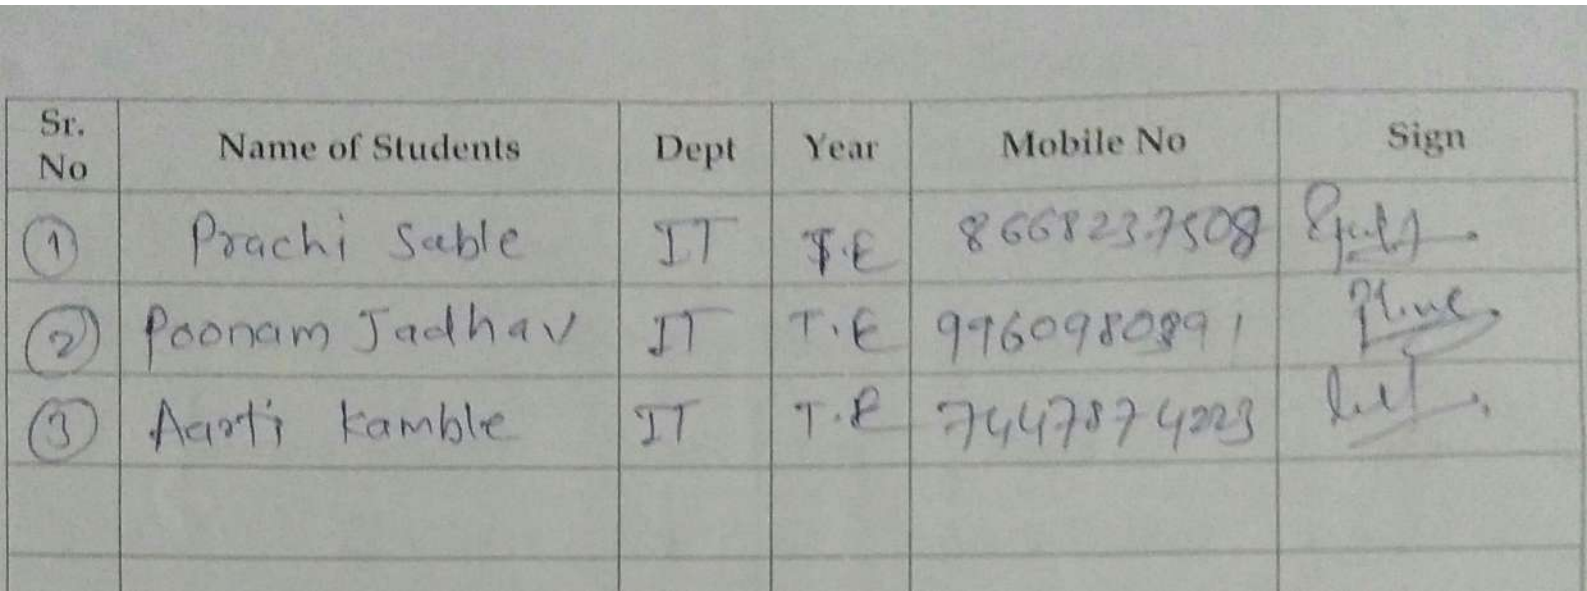 Sr. No Name of Students Dept Year Mobile No Sign
1 Prachi Sable IT T.E 8668237508
2 Poonam Jadhav IT T.E 9960980891
3 Aarti Kamble IT T.E 7447874223